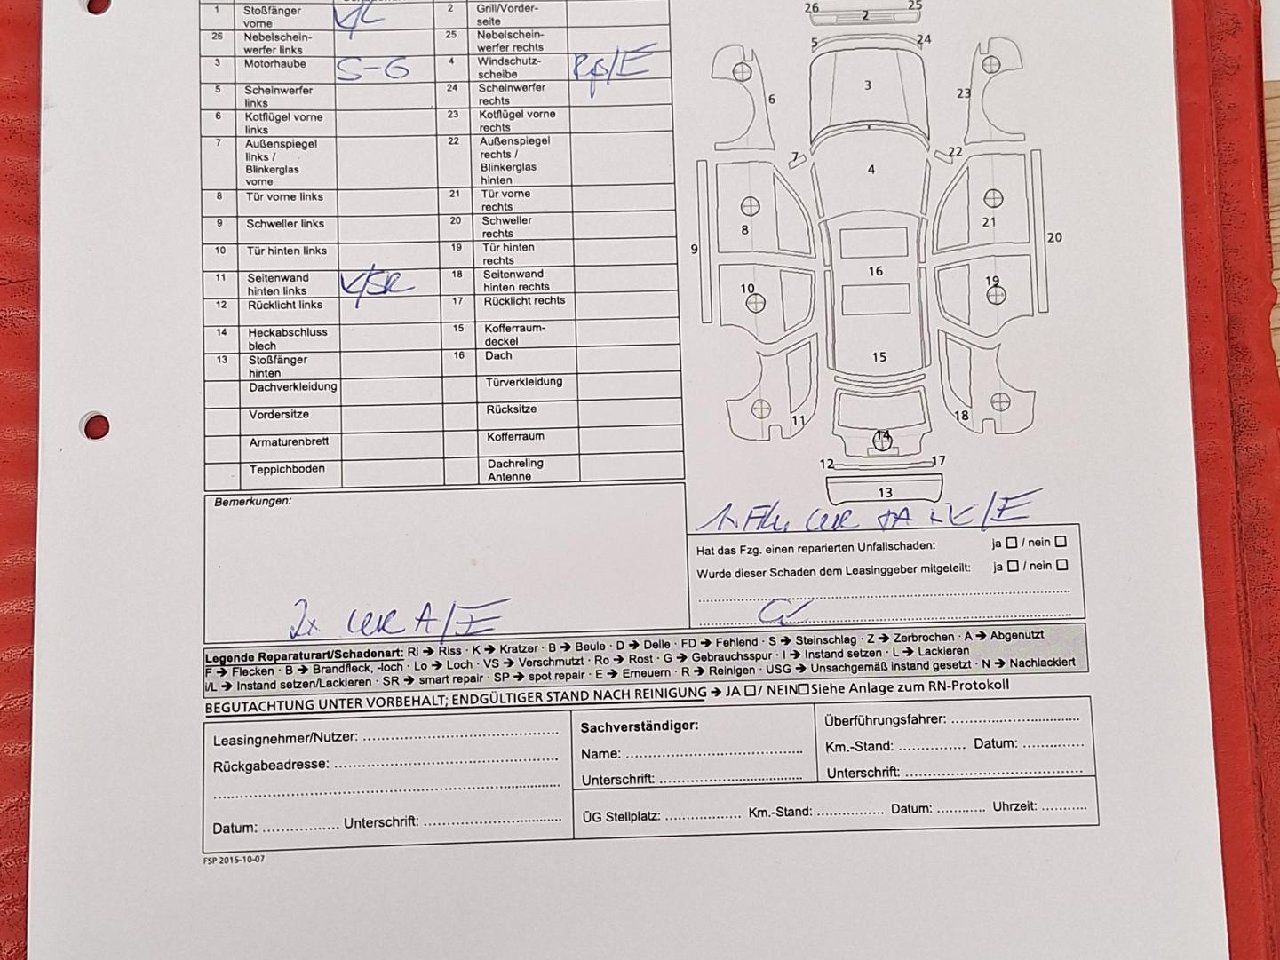 1 Stoßfänger vorne K/L 2 Grill/Vorder-seite
26 Nebelschein-werfer links 25 Nebelschein-werfer rechts
3 Motorhaube S-G 4 Windschutz-scheibe /E
5 Scheinwerfer links 24 Scheinwerfer rechts
6 Kotflügel vorne links 23 Kotflügel vorne rechts
7 Außenspiegel links / Blinkerglas vorne 22 Außenspiegel rechts / Blinkerglas hinten
8 Tür vorne links 21 Tür vorne rechts
9 Schweller links 20 Schweller rechts
10 Tür hinten links 19 Tür hinten rechts
11 Seitenwand hinten links K/SR 18 Seitenwand hinten rechts
12 Rücklicht links 17 Rücklicht rechts
14 Heckabschluss blech 15 Kofferraum-deckel
13 Stoßfänger hinten 16 Dach
Dachverkleidung Türverkleidung
Vordersitze Rücksitze
Armaturenbrett Kofferraum
Teppichboden Dachreling Antenne
26 2 25
5 24
3
6 23
7 22
4
8 21
9 20
16
10 19
15
11 18
14
12 17
13
Bemerkungen:
2x A/E
Hat das Fzg. einen reparierten Unfallschaden: ja / nein
Wurde dieser Schaden dem Leasinggeber mitgeteilt: ja / nein
Legende Reparaturart/Schadenart: Ri → Riss · K → Kratzer · B → Beule · D → Delle · FD → Fehlend · S → Steinschlag · Z → Zerbrochen · A → Abgenutzt
F → Flecken · B → Brandfleck, -loch · Lo → Loch · VS → Verschmutzt · Ro → Rost · G → Gebrauchsspur · I → Instand setzen · L → Lackieren
I/L → Instand setzen/Lackieren · SR → smart repair · SP → spot repair · E → Erneuern · R → Reinigen · USG → Unsachgemäß instand gesetzt · N → Nachlackiert
BEGUTACHTUNG UNTER VORBEHALT; ENDGÜLTIGER STAND NACH REINIGUNG → JA / NEIN Siehe Anlage zum RN-Protokoll
Leasingnehmer/Nutzer:
Rückgabeadresse:
Datum: Unterschrift:
Sachverständiger:
Name:
Unterschrift:
Überführungsfahrer:
Km.-Stand: Datum:
Unterschrift:
ÜG Stellplatz: Km.-Stand: Datum: Uhrzeit:
FSP 2015-10-07